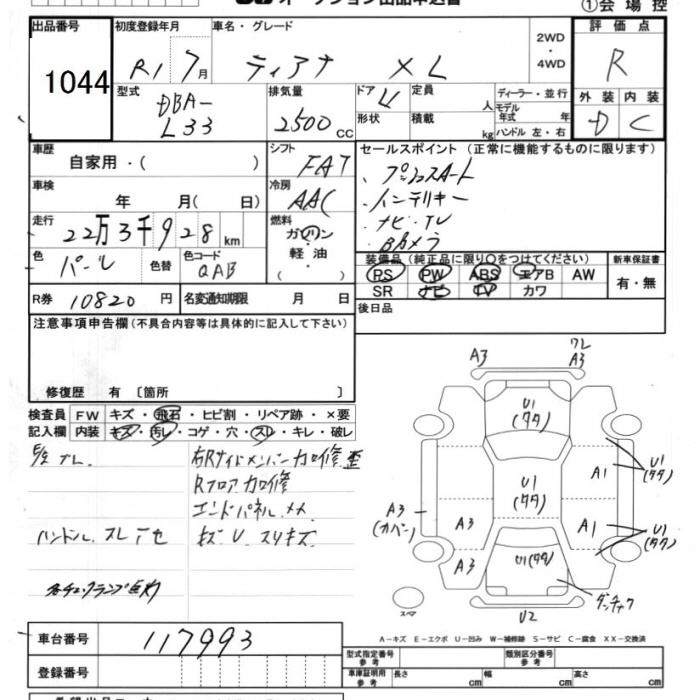 オークション出品申込書 ①会場控
出品番号 初度登録年月 車名・グレード 2WD ・ 4WD 評価点
1044 R1 7月 ティアナ XL R
型式 排気量 ドア 定員 ディーラー・並行 外装 内装
DBA-L33 2500cc 4 人 モデル年式 年 D C
形状 積載 kg ハンドル 左・右
車歴 シフト セールスポイント (正常に機能するものに限ります)
自家用・( ) FAT
・プッシュスタート
車検 冷房
年 月( 日) AAC ・インテリキー
走行 燃料 ・ナビ・TV
22万3千928km ガソリン ・Bカメラ
色 色替 色コード 軽油
パール QAB ・( )
装備品 (純正品に限り○をつけてください) 新車保証書
PS PW ABS エアB AW 有・無
SR ナビ TV カワ
R券 10820円 名変通知期限 月 日
後日品
注意事項申告欄(不具合内容等は具体的に記入して下さい)
修復歴 有 〔箇所 〕
検査員 FW キズ・飛石・ヒビ割・リペア跡・×要
記入欄 内装 キズ・汚レ・コゲ・穴・スレ・キレ・破レ
右Rサイドメンバー加修 歪
Rフロア加修
エンドパネル メメ
ハンドル スレ テセ キズ U スリキズ
A3 ワレ A3
U1(タタ)
A1 U1(タタ)
U1(タタ)
A3(カバー) A3 A1 U1(タタ)
A3 U1(タタ)
スペア U2
A-キズ E-エクボ U-凹み W-補修跡 S-サビ C-腐食 XX-交換済
車台番号 117993
型式指定番号 参考 類別区分番号 参考
登録番号 車庫証明用 参考 長さ cm 幅 cm 高さ cm